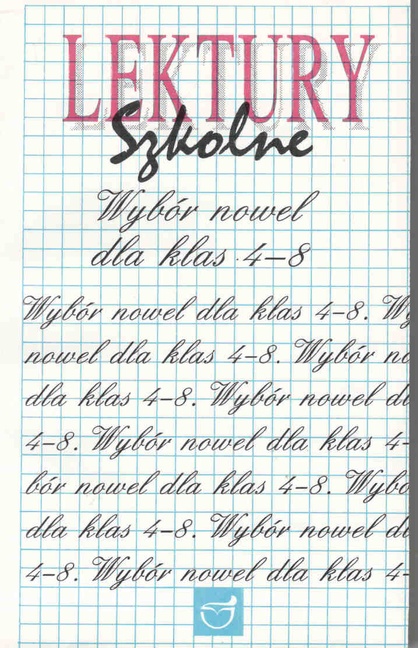 LEKTURY
Szkolne
Wybór nowel
dla klas 4-8
Wybór nowel dla klas 4-8. Wy
nowel dla klas 4-8. Wybór no
dla klas 4-8. Wybór nowel dl
4-8. Wybór nowel dla klas 4-
bór nowel dla klas 4-8. Wybó
dla klas 4-8. Wybór nowel dl
4-8. Wybór nowel dla klas 4-